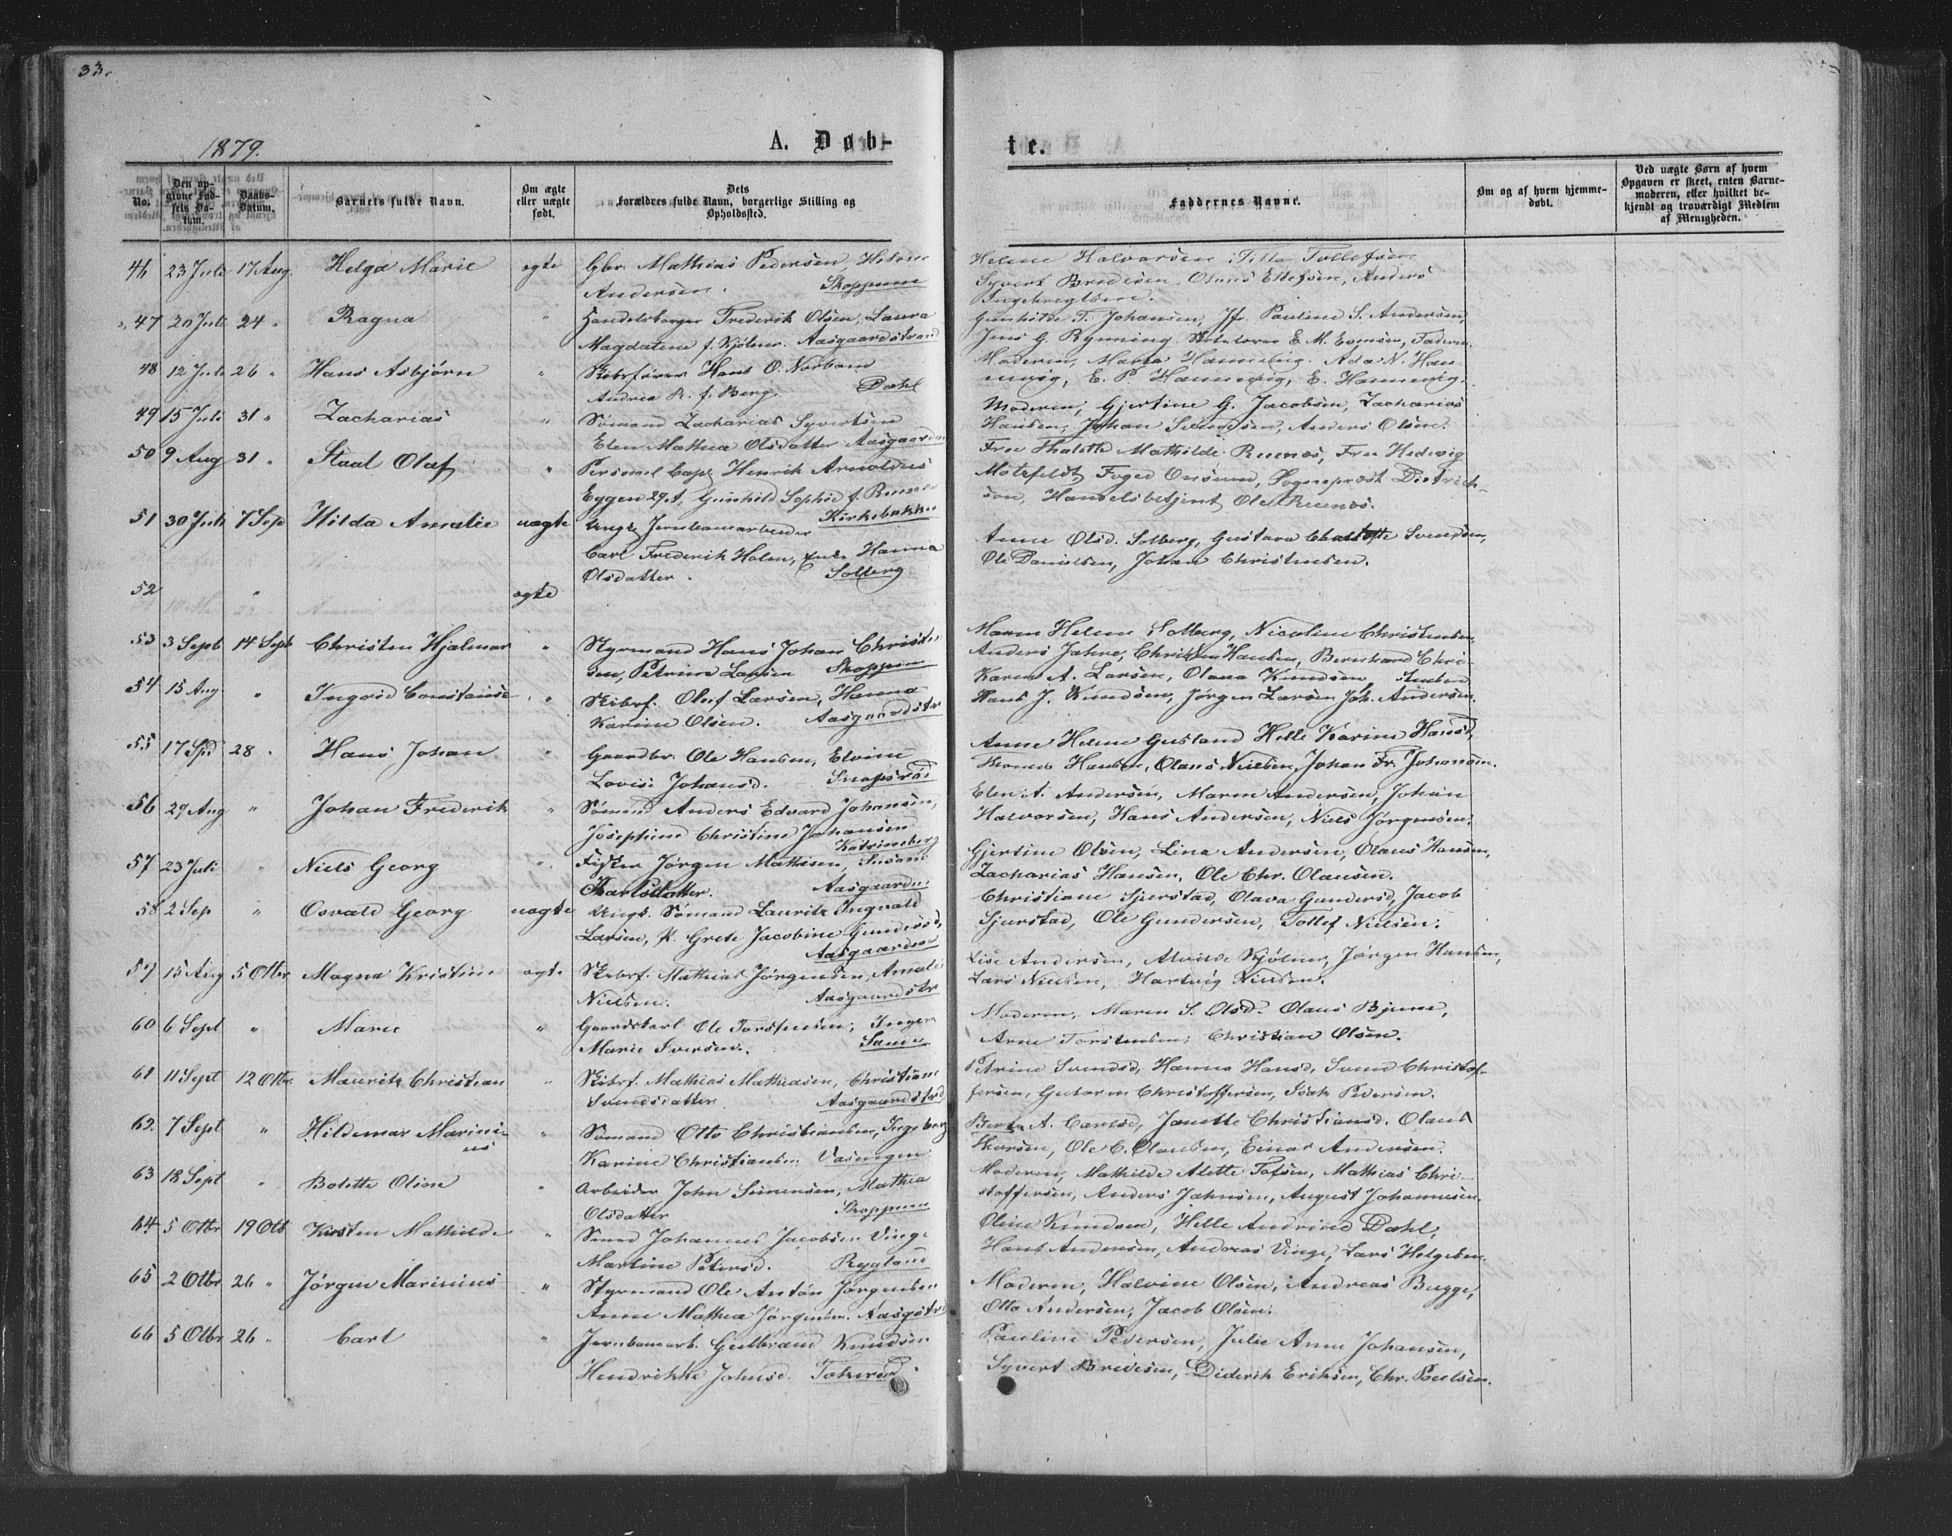 33.
1879.
A. Døb-
te.
No.
Den op-
givne Fød-
sels Da-
tum.
Daabs-
Datum.
Barnets fulde Navn.
Om ægte
eller uægte
født.
Dets
Forældres fulde Navn, borgerlige Stilling og
Opholdssted.
Faddernes Navne.
Om og af hvem hjemme-
døbt.
Ved uægte Børn af hvem
Opgaven er skeet, enten Barne-
moderen, eller hvilket be-
kjendt og troværdigt Medlem
af Menigheden.
46 23 Juli 17 Aug. Helga Marie ægte Gbr. Mathias Pedersen, Helene
Andersen. Skoppum
Helene Halvorsen
Syvert Bredesen, Anders
47 20 Juli 24 " Ragna " Handelsborger Frederik Olsen, Laura
Magdalene f. Kjölner. Aasgaardstrand
Gunhilde T. Johansen, Jfr. Pauline S. Andersen,
Jens G. Rynning, E. M. Evensen, Faderen
48 12 Juli 26 " Hans Asbjørn " Skibsfører Hans O. Norbom
Andrea R. f. Berg. Dahl
Moderen, Maria Hannevig. Ada N. Han-
nevig, E. P. Hannevig, E. Hannevig.
49 15 Juli 31 " Zacharias " Sømand Zacharias Syvertsen
Elen Mathea Olsdatter Aasgaarden
Moderen, Gjertine G. Jacobsen, Zacharias
Hansen, Johan Svendsen, Anders Olsen.
50 9 Aug 31 " Staal Olaf " Personel Capl. Henrik Arnoldus
Eggen 29 A, Gunhild Sophie f. Reenaas
Kirkebakken
Fru Thalette Mathilde Reenaas, Fru Hedevig
Motzfeldt, Foged Onsum, Sogneprest Dietrich-
son, Handelsbetjent Ole Reenaas.
51 30 Juli 7 Sep Hilda Amalie uægte Ungk. Jernbanearbeider
Carl Frederik Holm, Enke Hanna
Olsdatter. Solberg
Anne Olsd. Solberg, Gustava Charlotte Svendsen,
Ole Danielsen, Johan Christensen.
52 " ægte
53 3 Septb 14 Septb Christen Hjalmar " Styrmand Hans Johan Christen
sen, Petrine Larsen Skoppum
Maren Helene Solberg, Nicoline Christensen
Anders Jahne, Christen Hansen, Bernhard Chri-
stensen
54 15 Aug. " Ingvid Constanse " Skibsf. Oluf Larsen, Hanna
Karine Olsen. Aasgaardstr
Karen A. Larsen, Olava Knudsen
Hans J. Knudsen, Jørgen Larsen Joh. Andersen.
55 17 Sep 28 " Hans Johan " Gaardbr. Ole Hansen, Elvine
Lovise Johansd. Snapsrød
Anne Helene Gusland Helle Karine Hansd,
Thomas Hansen, Olaus Nielsen, Johan Fr. Johansen.
56 29 Aug " Johan Frederik " Sømand Anders Edvard Johansen,
Josephine Christine Johansen
Katrineberg
Elen A. Andersen, Maren Andersen, Johan
Halvorsen, Hans Andersen, Niels Jørgensen.
57 23 Juli " Niels Georg " Fisker Jørgen Mathisen, Susane
Karlsdatter. Aasgaarden
Gjertine Olsen, Lina Andersen, Olaus Hansen,
Zacharias Hansen, Ole Chr. Olausen.
58 2 Sep " Osvald Georg uægte Ungk. Sømand Lauritz Ingvald
Larsen, P. Grete Jacobine Gundersd,
Aasgaarden
Christiane Sjerstad, Olava Gundersd, Jacob
Sjerstad, Ole Gundersen, Tollef Nielsen.
59 15 Aug 5 Otbr Magna Kristine ægte Skibsf. Mathias Jørgensen, Amalie
Nielsen. Aasgaardstr
Lise Andersen, Alvilde Kjölner, Jørgen Hansen,
Lars Nielsen, Hartvig Nielsen.
60 6 Sept " Marie " Gaardskarl Ole Torstensen, Inger
Marie Iversen.
Moderen, Maren S. Olsd. Olaus Bjune,
Arne Torstensen, Christian Olsen.
61 11 Sept 12 Otbr Mauritz Christian " Skibsf. Mathias Mathiasen, Christiane
Svendsdatter Aasgaardstrd
Petrine Svendsd, Hanna Hansd, Svend Christof-
fersen, Guttorm Christoffersen, Isak Pedersen.
62. 7 Sept " Hildemar Marini-
us " Sømand Otto Christiansen, Ingeborg
Karine Christiansen Vasengen
Berte A. Carlsd, Janette Christiansd. Olaus
Thorsen, Ole C. Olausen, Einar Andersen.
63 18 Sept " Bolette Oline " Arbeider John Simensen, Mathea
Olsdatter Skoppum
Moderen, Mathilde Alette Tofsen, Mathias Chri-
stoffersen, Anders Jahnsen, August Johannesen.
64 5 Otbr 19 Otb Kirsten Mathilde " Smed Johannes Jacobsen Vinge
Martine Petersd. Rygland
Oline Knudsen, Helle Andrine Dahl,
Hans Andersen, Andreas Vinge, Lars Helgesen.
65 2 Otbr 26 " Jørgen Marinius " Styrmand Ole Anton Jørgensen
Anne Mathea Jørgensen. Aasgstr
Moderen, Halvine Olsen, Andreas Bugge,
Otto Andersen, Jacob Olsen.
66 5 Otbr 26 " Carl " Jernbanearb. Gulbrand Knudsen
Hendrikke Johnsd.
Pauline Pedersen, Julie Anne Johansen,
Syvert Bredesen, Diderik Eriksen, Chr. Paulsen.